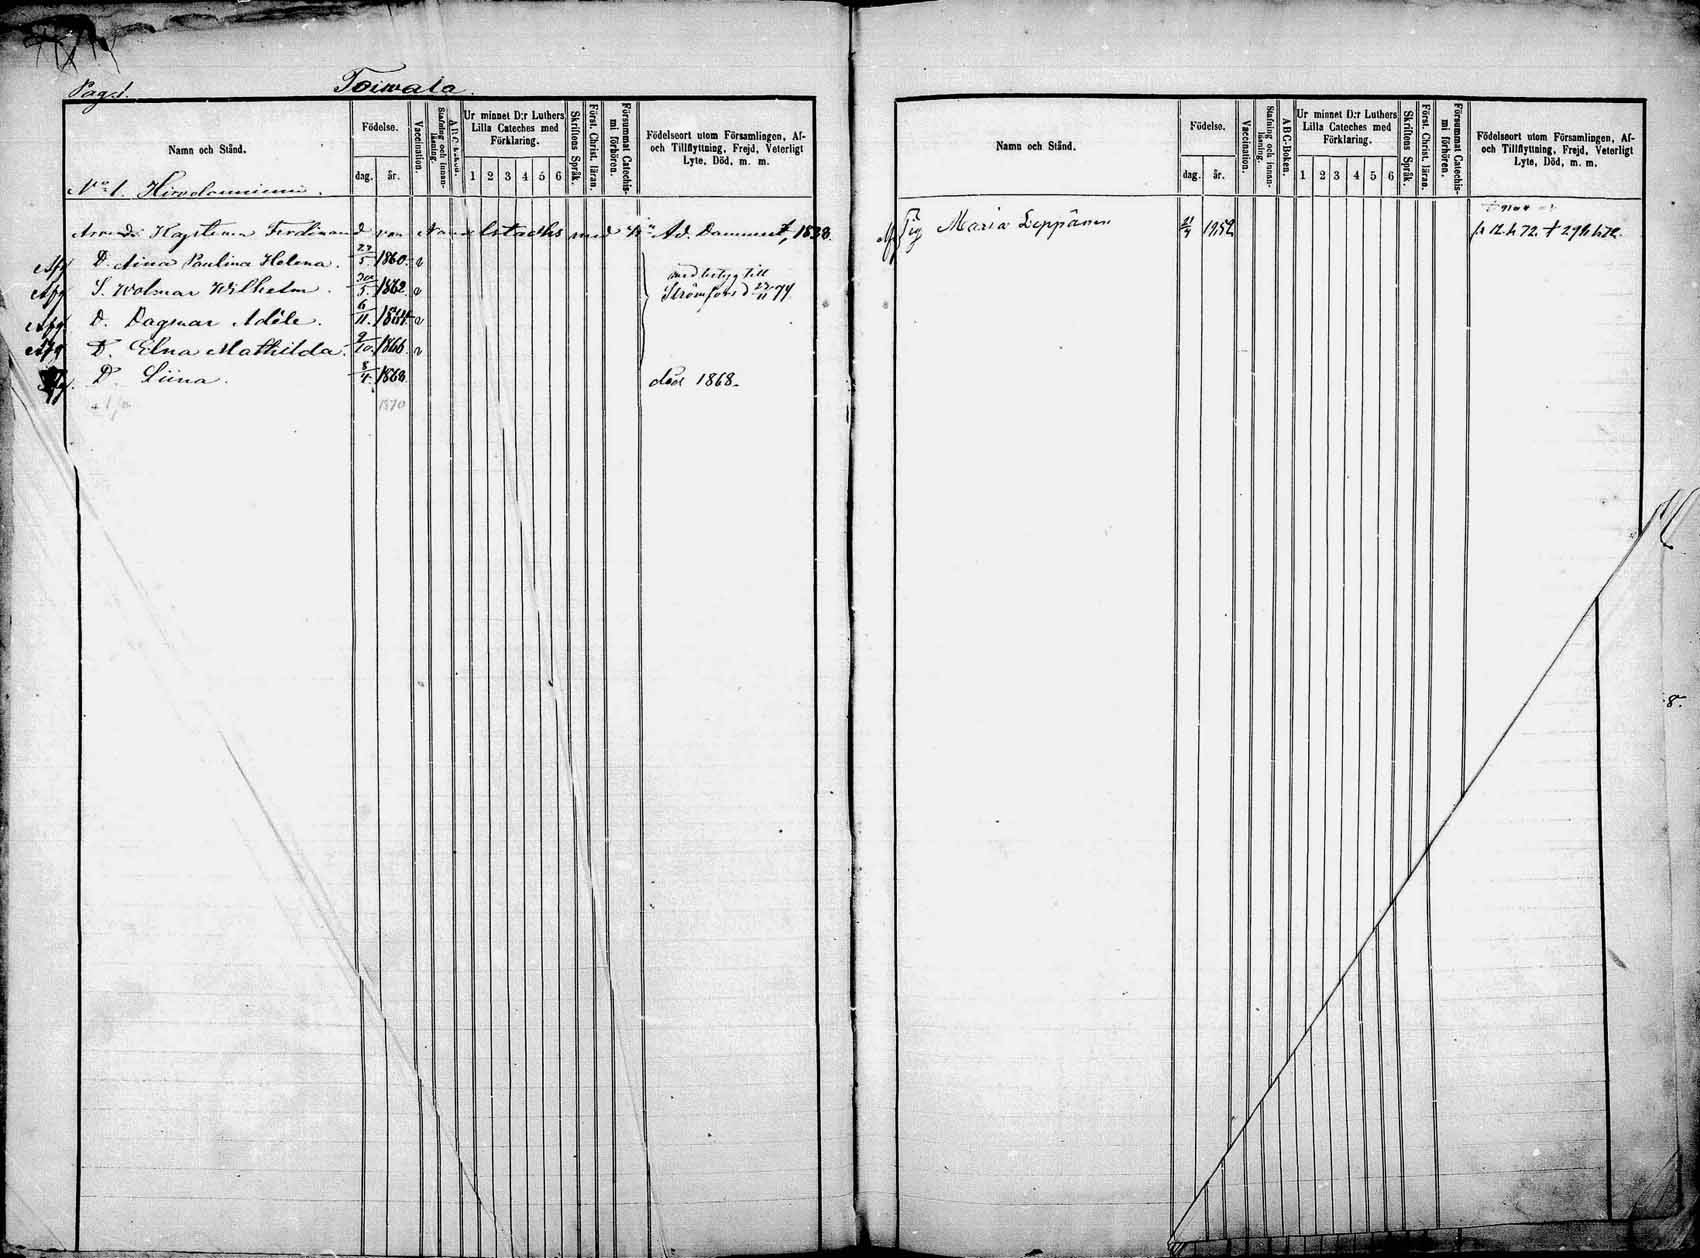 Pag. 1.
Toiwala.
Namn och Stånd.
Födelse.
dag.
år.
Vaccination.
Stafning och innan-läsning.
A B C-boken.
Ur minnet D:r Luthers
Lilla Cateches med
Förklaring.
1 2 3 4 5 6
Skriftens Språk.
Först. Christ. läran.
Försummat Catechis-mi förhören.
Födelseort utom Församlingen, Af-
och Tillflyttning, Frejd, Veterligt
Lyte, Död, m. m.
N:o 1.
Ferdinand von med Ad. 1838.
Afg D. Aina Paulina Helena. 5 1860. v
med betyg till
Afg S. Wolmar Wilhelm. 30/5. 1862. v Strömfors d. 23/11 74
Afg D. Dagmar Adèle. 6/11. 1864 v
Afg D. Elna Mathilda. 9/10. 1866. v
Afg. D. Liina. 8/4. 1868. död 1868.
1870
Namn och Stånd.
Födelse.
dag.
år.
Vaccination.
Stafning och innan-läsning.
A B C-Boken.
Ur minnet D:r Luthers
Lilla Cateches med
Förklaring.
1 2 3 4 5 6
Skriftens Språk.
Först. Christ. läran.
Försummat Catechis-mi förhören.
Födelseort utom Församlingen, Af-
och Tillflyttning, Frejd, Veterligt
Lyte, Död, m. m.
Pig Maria Leppänen 1852
8.